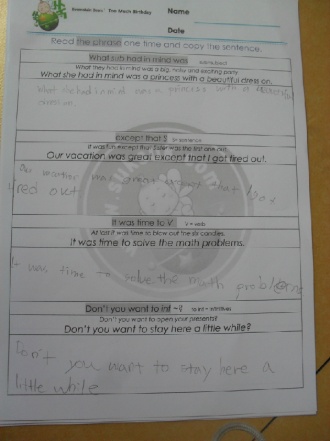 The Math Birthday
Name
Date
Read the phrase one time and copy the sentence.
What sub had in mind was
What they had in mind was a big, noisy and exciting party.
What she had in mind was a princess with a beautiful dress on.
What she had in mind was a princess with a
except that S
S= sentence
It was fun except that
was the last one out.
Our vacation was great except that I got tired out.
Our vacation was great except that I got
tired out
It was time to V
V = verb
At last it was time to blow out the six candles.
It was time to solve the math problems.
It was time to solve the math problems
Don't you want to inf ~?
to inf = infinitive
Don't you want to open your presents?
Don't you want to stay here a little while?
Don't you want to stay here a
little while